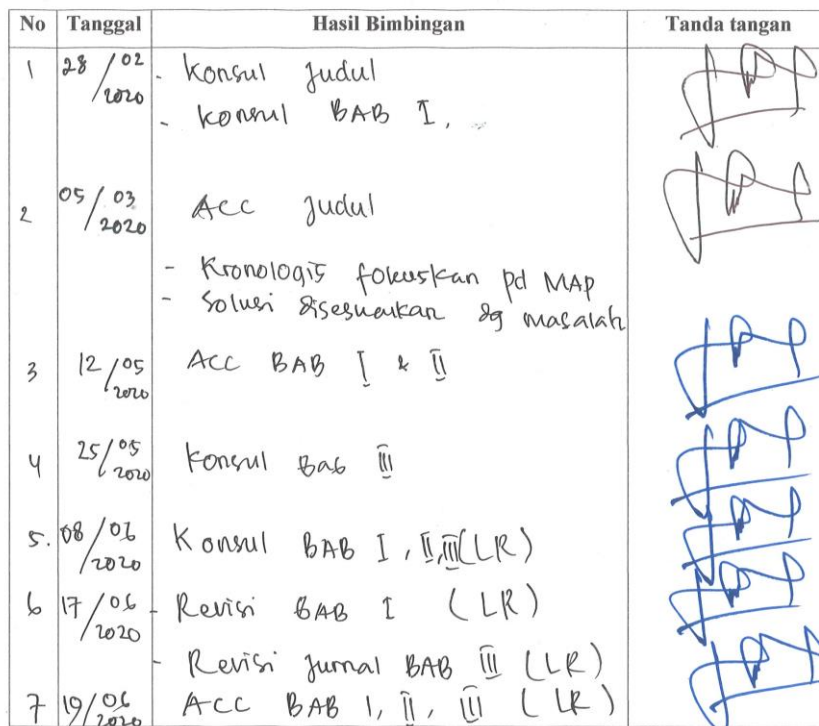 No Tanggal Hasil Bimbingan Tanda tangan
1 28/02/2020 - Konsul Judul
- Konsul BAB I.
2 05/03/2020 ACC Judul
- Kronologis fokuskan pd MAP
- Solusi disesuaikan dg masalah
3 12/05/2020 ACC BAB I & II
4 25/05/2020 Konsul Bab III
5. 08/06/2020 Konsul BAB I, II, III (LR)
6 17/06/2020 - Revisi BAB I (LR)
- Revisi Jurnal BAB III (LR)
7 19/06/2020 ACC BAB I, II, III (LR)